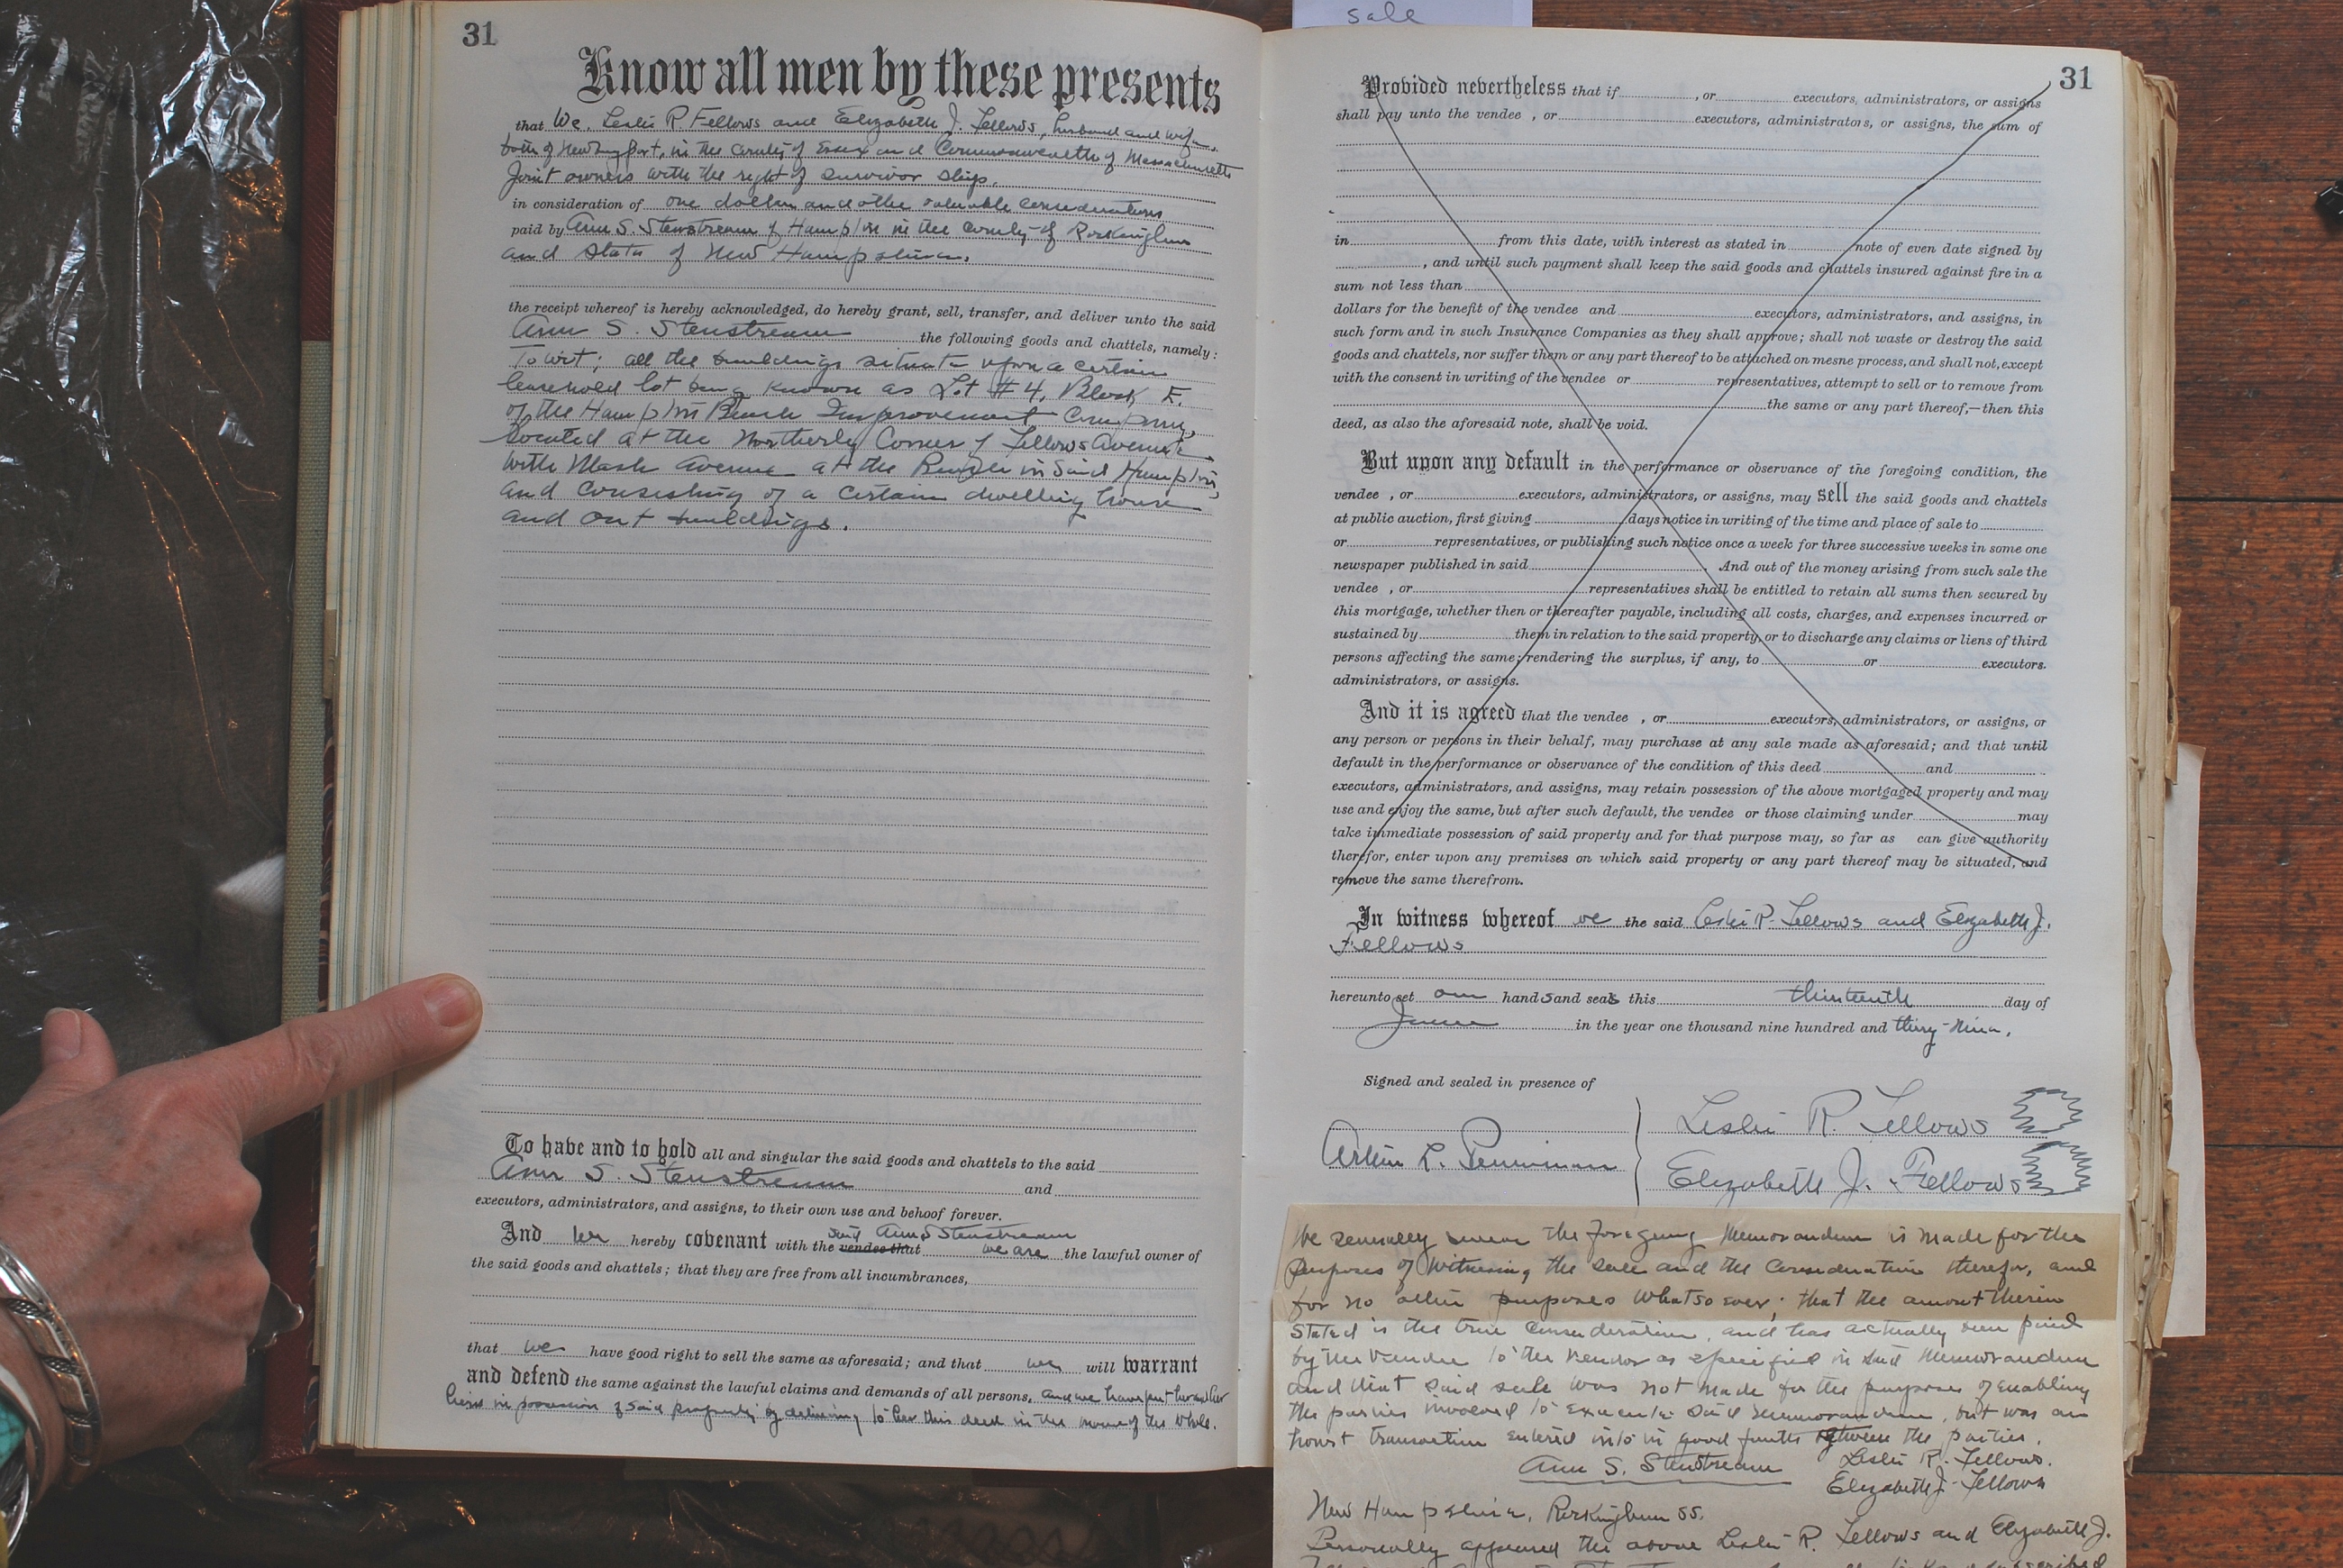 sale
31
Know all men by these presents
that We, Leslie R. Fellows and Elizabeth J. Fellows, husband and wife,
both of Newburyport, in the County of Essex and Commonwealth of Massachusetts
Joint owners with the right of survivor ship.
in consideration of one dollar and other valuable considerations
paid by Ann S. Stenstream of Hampton in the County of Rockingham
and State of New Hampshire.
the receipt whereof is hereby acknowledged, do hereby grant, sell, transfer, and deliver unto the said
Ann S. Stenstream the following goods and chattels, namely:
To wit; all the buildings situate upon a certain
leasehold lot being known as Lot #4, Block E.
of the Hampton Beach Improvement Company,
located at the Northerly Corner of Fellows Avenue
with Nash Avenue at the in said Hampton,
and consisting of a certain dwelling house
and out buildings.
To have and to hold all and singular the said goods and chattels to the said
Ann S. Stenstream and
executors, administrators, and assigns, to their own use and behoof forever.
said Ann S Stenstream
And we hereby covenant with the vendee that we are the lawful owner of
the said goods and chattels; that they are free from all incumbrances,
that we have good right to sell the same as aforesaid; and that we will warrant
and defend the same against the lawful claims and demands of all persons, and we have put her and her
heirs in possession of said property by delivering to her this deed in the name of the whole.
31
Provided nevertheless that if , or executors, administrators, or assigns
shall pay unto the vendee , or executors, administrators, or assigns, the sum of
in from this date, with interest as stated in note of even date signed by
, and until such payment shall keep the said goods and chattels insured against fire in a
sum not less than
dollars for the benefit of the vendee and executors, administrators, and assigns, in
such form and in such Insurance Companies as they shall approve; shall not waste or destroy the said
goods and chattels, nor suffer them or any part thereof to be attached on mesne process, and shall not, except
with the consent in writing of the vendee or representatives, attempt to sell or to remove from
the same or any part thereof,—then this
deed, as also the aforesaid note, shall be void.
But upon any default in the performance or observance of the foregoing condition, the
vendee , or executors, administrators, or assigns, may sell the said goods and chattels
at public auction, first giving days notice in writing of the time and place of sale to
or representatives, or publishing such notice once a week for three successive weeks in some one
newspaper published in said . And out of the money arising from such sale the
vendee , or representatives shall be entitled to retain all sums then secured by
this mortgage, whether then or thereafter payable, including all costs, charges, and expenses incurred or
sustained by them in relation to the said property, or to discharge any claims or liens of third
persons affecting the same; rendering the surplus, if any, to or executors.
administrators, or assigns.
And it is agreed that the vendee , or executors, administrators, or assigns, or
any person or persons in their behalf, may purchase at any sale made as aforesaid; and that until
default in the performance or observance of the condition of this deed and
executors, administrators, and assigns, may retain possession of the above mortgaged property and may
use and enjoy the same, but after such default, the vendee or those claiming under may
take immediate possession of said property and for that purpose may, so far as can give authority
therefor, enter upon any premises on which said property or any part thereof may be situated, and
remove the same therefrom.
In witness whereof we the said Leslie R. Fellows and Elizabeth J.
Fellows
hereunto set our hands and seals this thirteenth day of
June in the year one thousand nine hundred and thirty-nine.
Signed and sealed in presence of
Leslie R. Fellows
Elizabeth J. Fellows
We severally swear the foregoing Memorandum is made for the
purposes of witnessing the sale and the consideration therefor, and
for no other purposes whatsoever; that the amount therein
stated is the true consideration, and has actually been paid
by the Vendee to the Vendor as specified in said Memorandum
and that said sale was not made for the purposes of enabling
the parties involved to execute said memorandum, but was an
honest transaction entered into in good faith between the parties.
Ann S. Stenstream Leslie R. Fellows.
Elizabeth J. Fellows
New Hampshire, Rockingham SS.
Personally appeared the above Leslie R. Fellows and Elizabeth J.